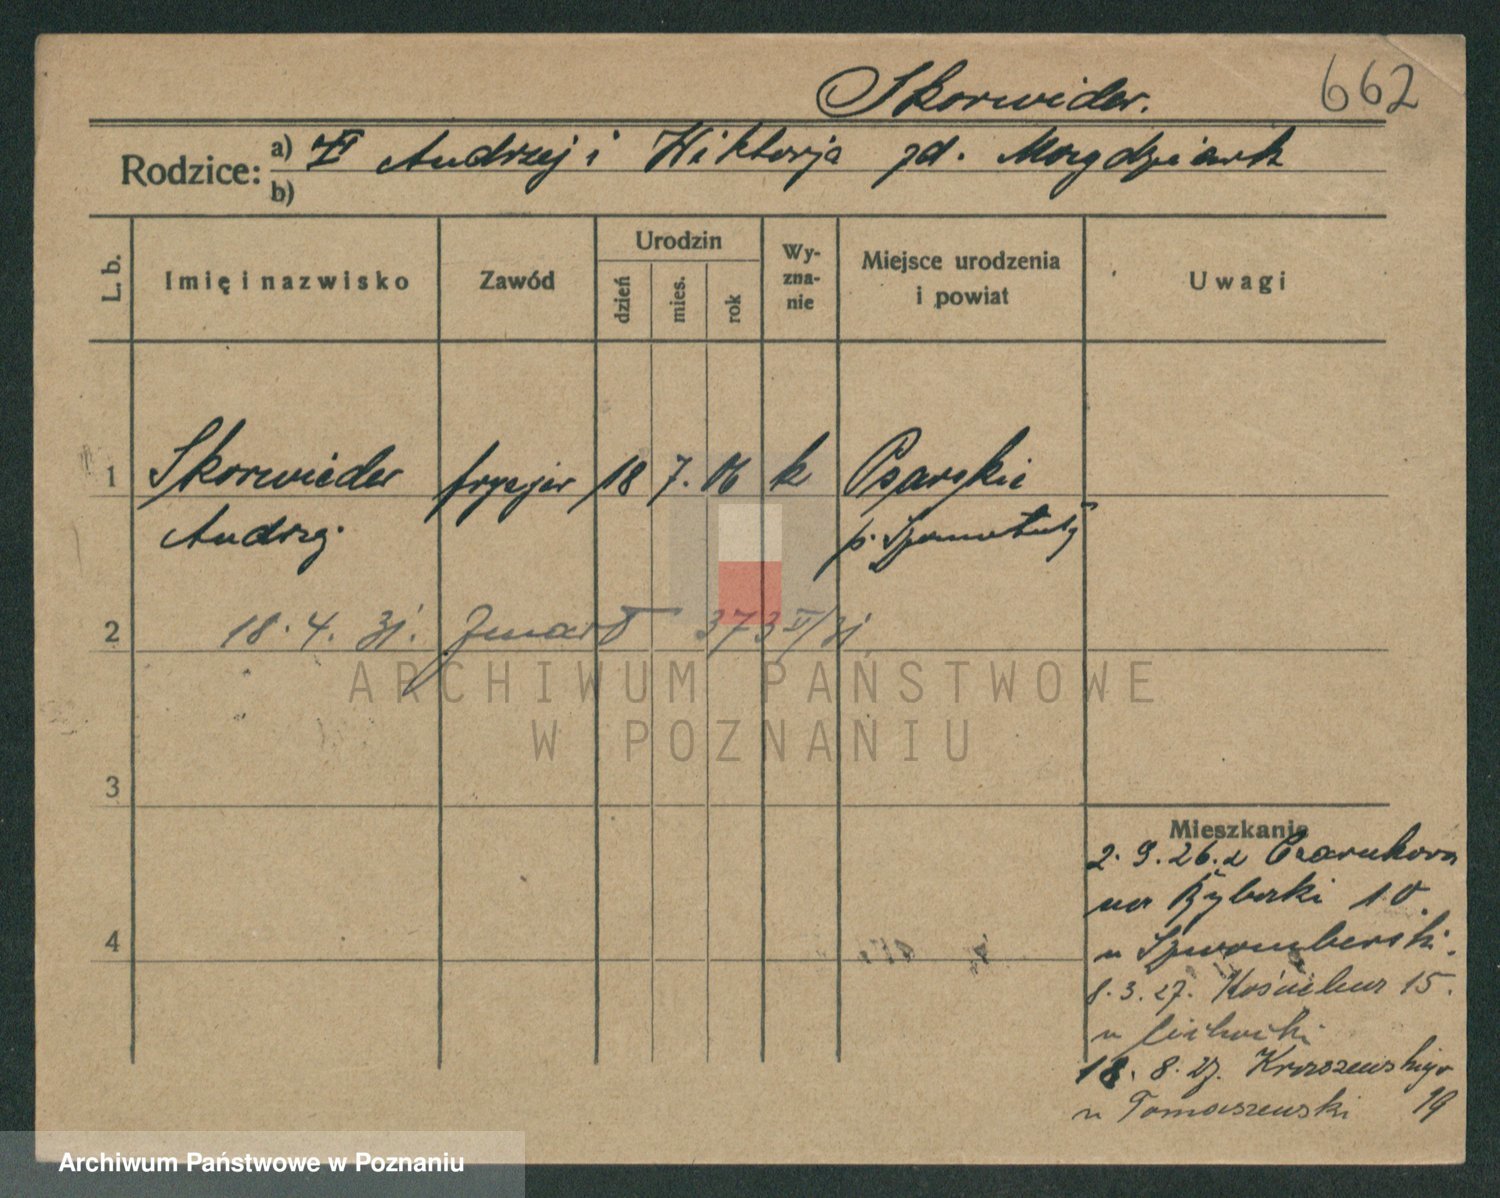 Skorwider.
662
Rodzice: a) Andrzej i Wiktorja zd. Mozgdziank
b)
L. b.
Imię i nazwisko
Zawód
Urodzin
dzień
mies.
rok
Wy-
zna-
nie
Miejsce urodzenia
i powiat
Uwagi
1 Skorwider fryzjer 18 7. 06 k Psarskie
Andrzej p. Szamotuły
2 18. 4. 31. zmarł 373 V/31
3
4
Mieszkanie
2. 9. 26. z Czarnkowa
na Rybaki 10.
u
8. 3. 27. 15.
u
18. 8. 27. Kraszewskiego
u Tomaszewski 19
ARCHIWUM PAŃSTWOWE
W POZNANIU
Archiwum Państwowe w Poznaniu